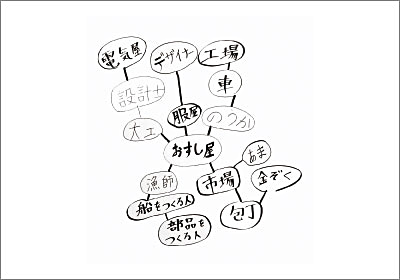 電気屋
デザイナー
工場
設計士
車
大工
服屋
のうか
おすし屋
あま
漁師
市場
金ぞく
船をつくる人
包丁
部品を
つくる人